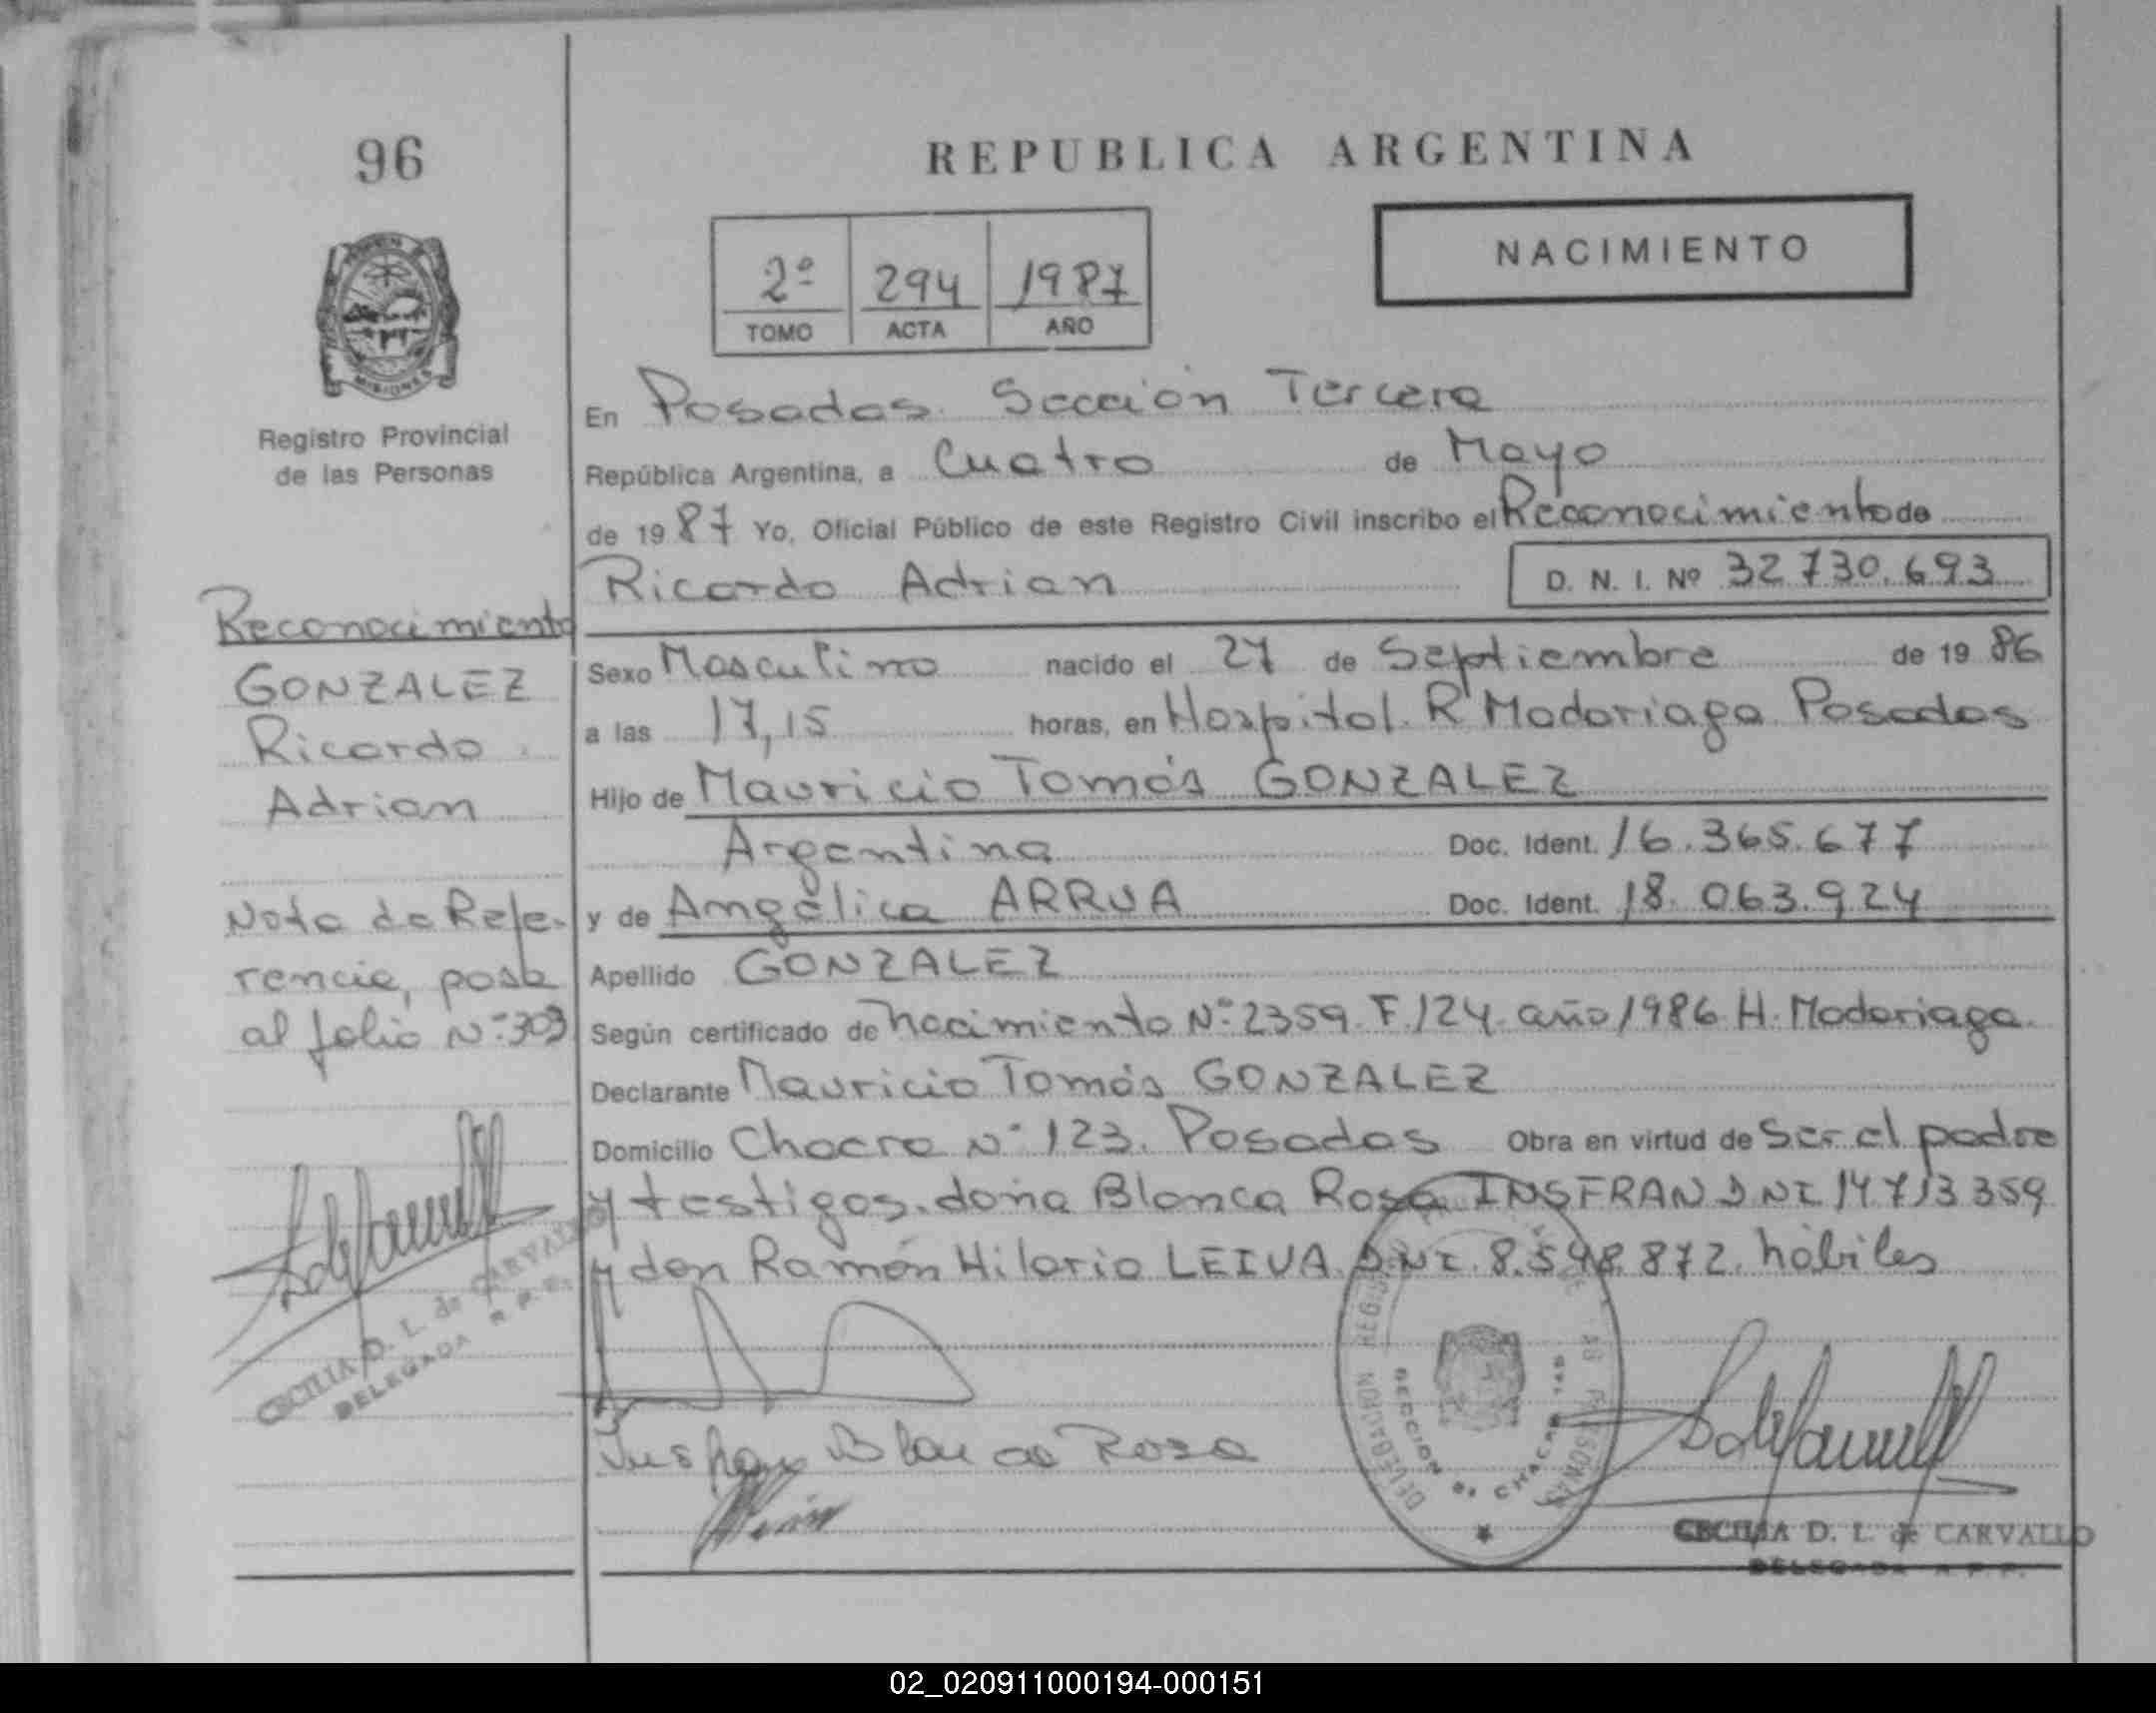 96
REPUBLICA ARGENTINA
NACIMIENTO
2º 294 1987
TOMO ACTA AÑO
MISIONES
Registro Provincial
de las Personas
En Posadas Sección Tercera
República Argentina, a Cuatro de Mayo
de 1987 Yo, Oficial Público de este Registro Civil inscribo el Reconocimiento de
Ricardo Adrian D. N. I. Nº 32.730.693
Reconocimiento
GONZALEZ
Ricardo
Adrian
Nota de Refe-
rencia, pasa
al folio Nº 303
Sexo Masculino nacido el 27 de Septiembre de 1986
a las 17,15 horas, en Hospital R Madariaga Posadas
Hijo de Mauricio Tomás GONZALEZ
Argentina Doc. Ident. 16.365.677
y de Angélica ARRUA Doc. Ident. 18.063.924
Apellido GONZALEZ
Según certificado de nacimiento Nº 2359 F.124 año 1986 H. Madariaga
Declarante Mauricio Tomás GONZALEZ
Domicilio Chacra Nº 123. Posadas Obra en virtud de Ser el padre
y testigos. doña Blanca Rosa INSFRAN DNI 14713359
y don Ramón Hilario LEIVA DNI. 8.598.872. hábiles
CECILIA D. L. de CARVALLO
DELEGADA R. P. P.
Blanca Rosa
SECCION CHACRAS
CECILIA D. L. de CARVALLO
DELEGADA R. P. P.
02_020911000194-000151